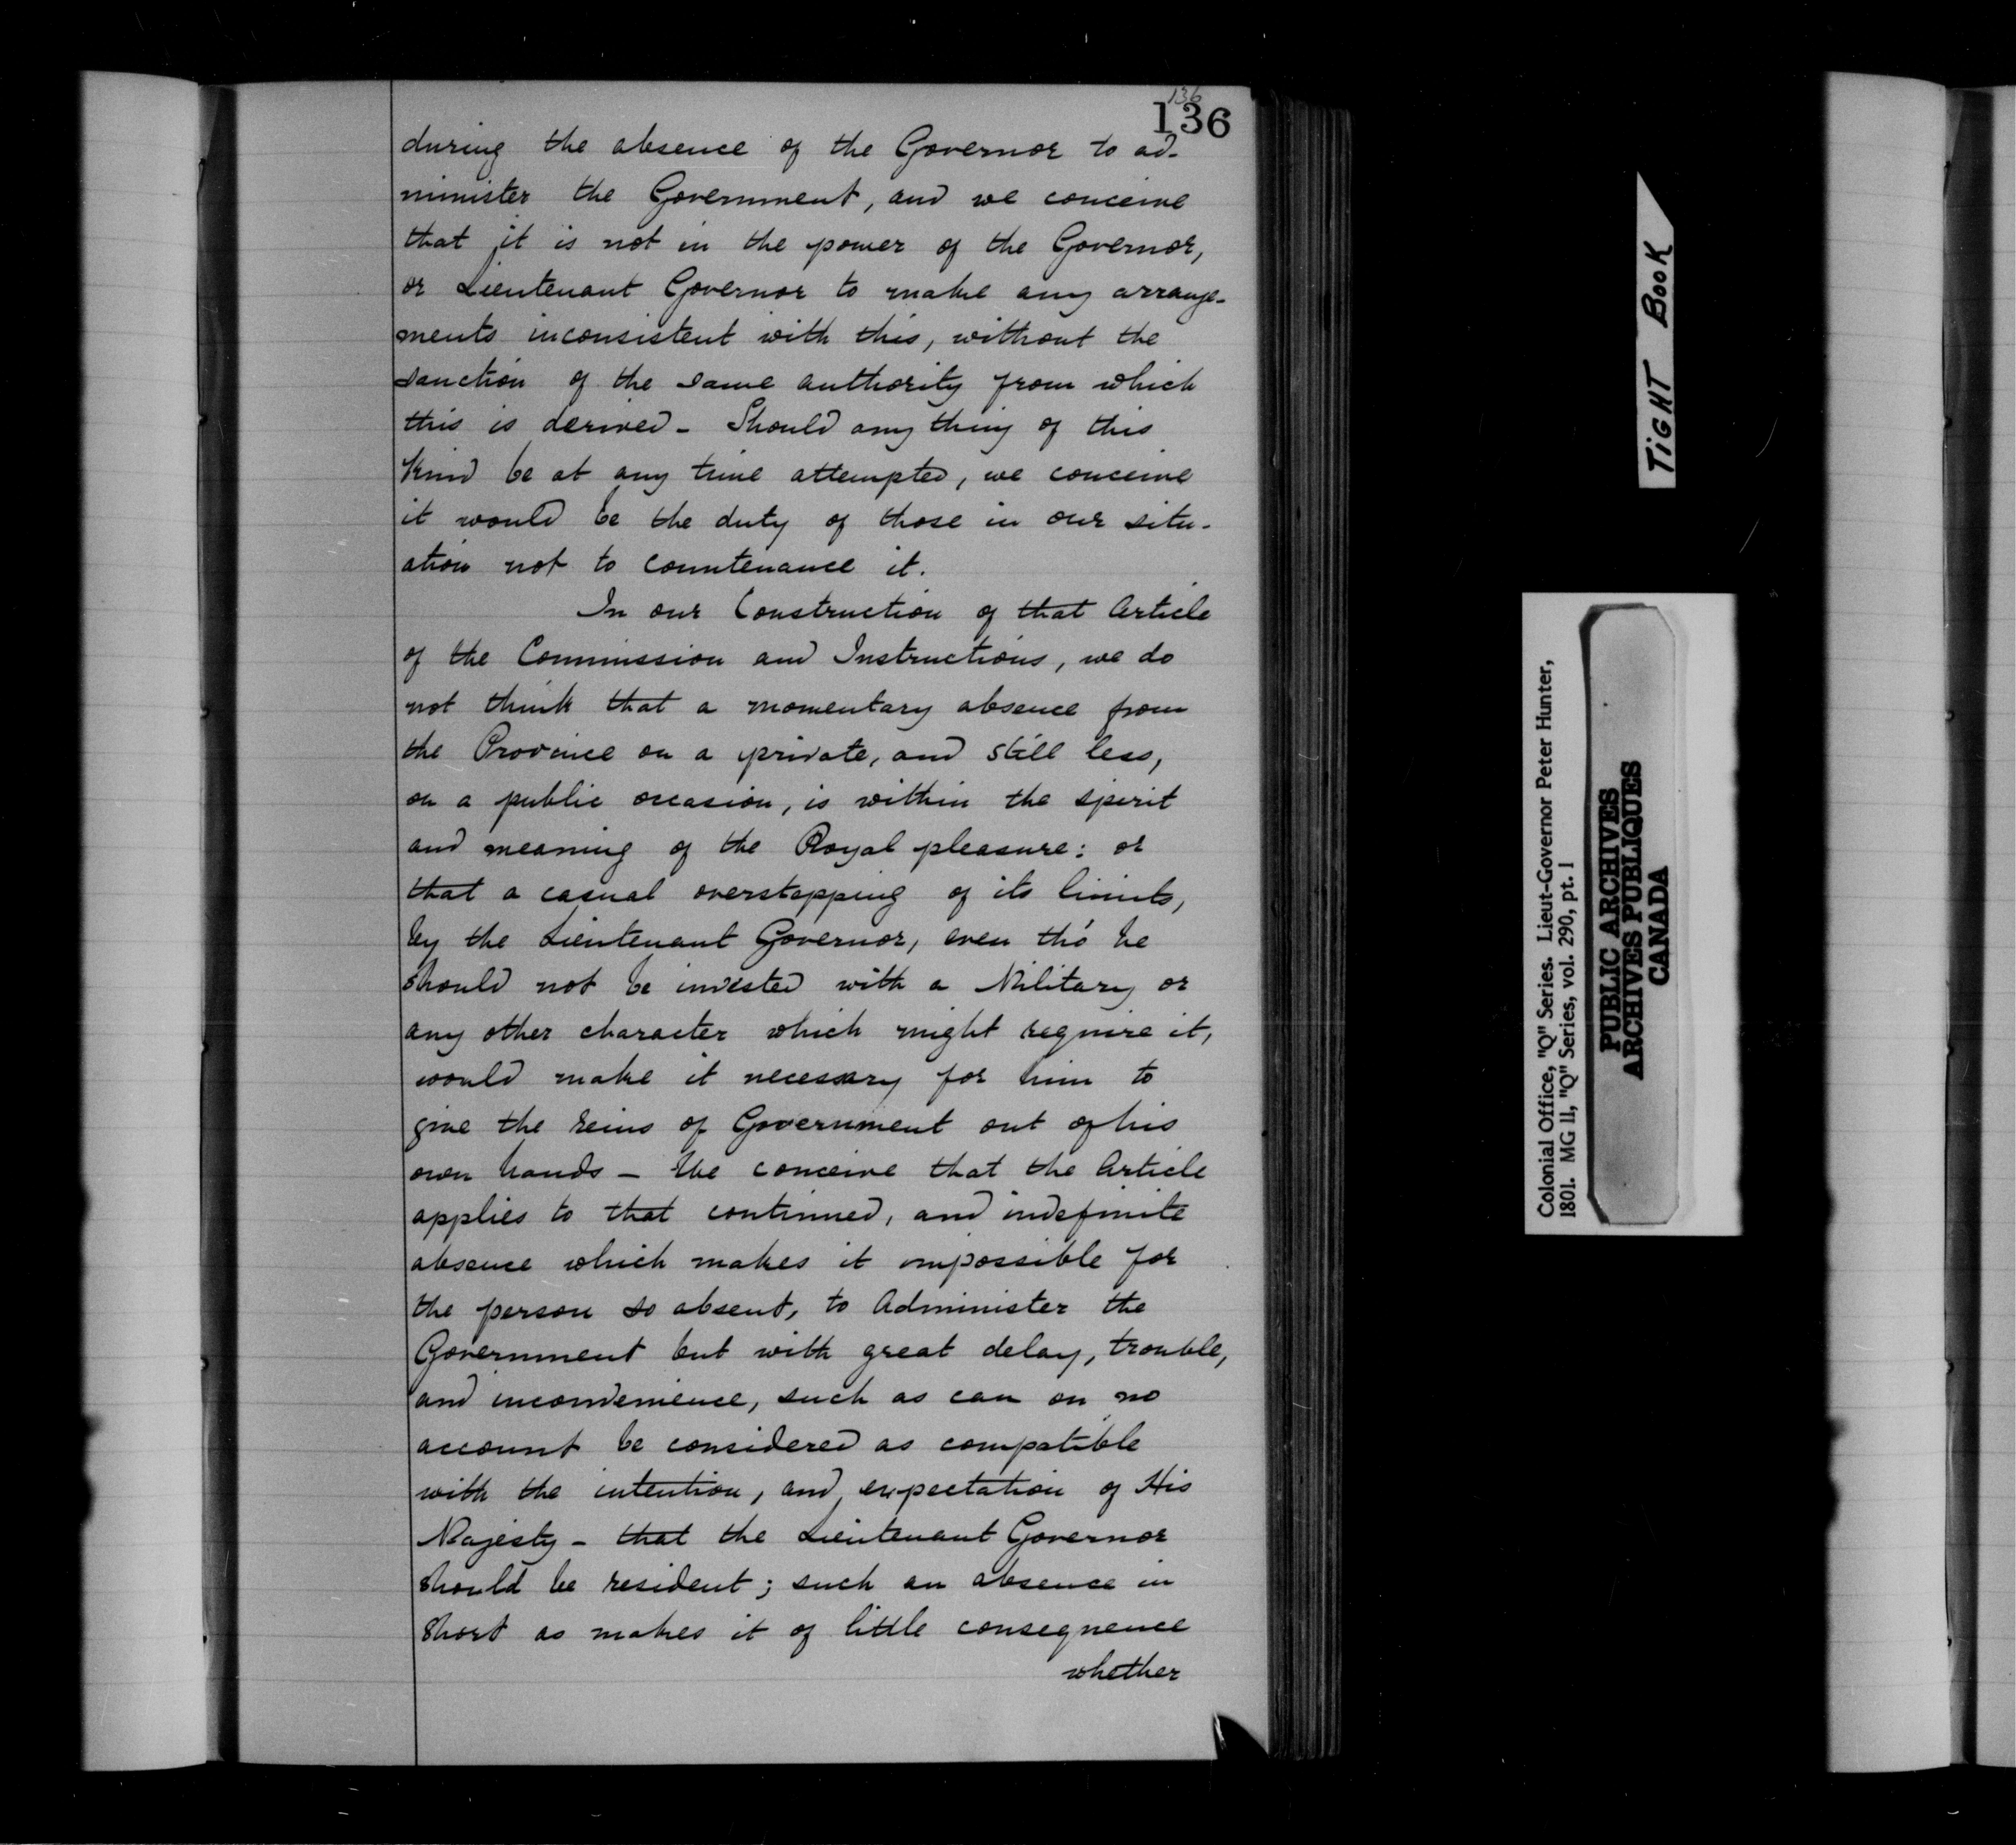 136
136
during the absence of the Governor to ad-
minister the Government, and we conceive
that it is not in the power of the Governor,
or Lieutenant Governor to make any arrange-
ments inconsistent with this, without the
sanction of the same authority from which
this is derived - Should any thing of this
kind be at any time attempted, we conceive
it would be the duty of those in our situ-
ation not to countenance it.
In our Construction of that Article
of the Commission and Instructions, we do
not think that a momentary absence from
the Province on a private, and still less,
on a public occasion, is within the spirit
and meaning of the Royal pleasure: or
that a casual overstepping of its limits,
by the Lieutenant Governor, even tho' he
should not be invested with a Military or
any other character which might require it,
would make it necessary for him to
give the reins of Government out of his
own hands - We conceive that the Article
applies to that continued, and indefinite
absence which makes it impossible for
the person so absent, to Administer the
Government but with great delay, trouble,
and inconvenience, such as can on no
account be considered as compatible
with the intention, and expectation of His
Majesty - that the Lieutenant Governor
should be resident; such an absence in
short as makes it of little consequence
whether
TIGHT BOOK
Colonial Office, "Q" Series. Lieut-Governor Peter Hunter,
1801. MG 11, "Q" Series, vol. 290, pt. 1
PUBLIC ARCHIVES
ARCHIVES PUBLIQUES
CANADA